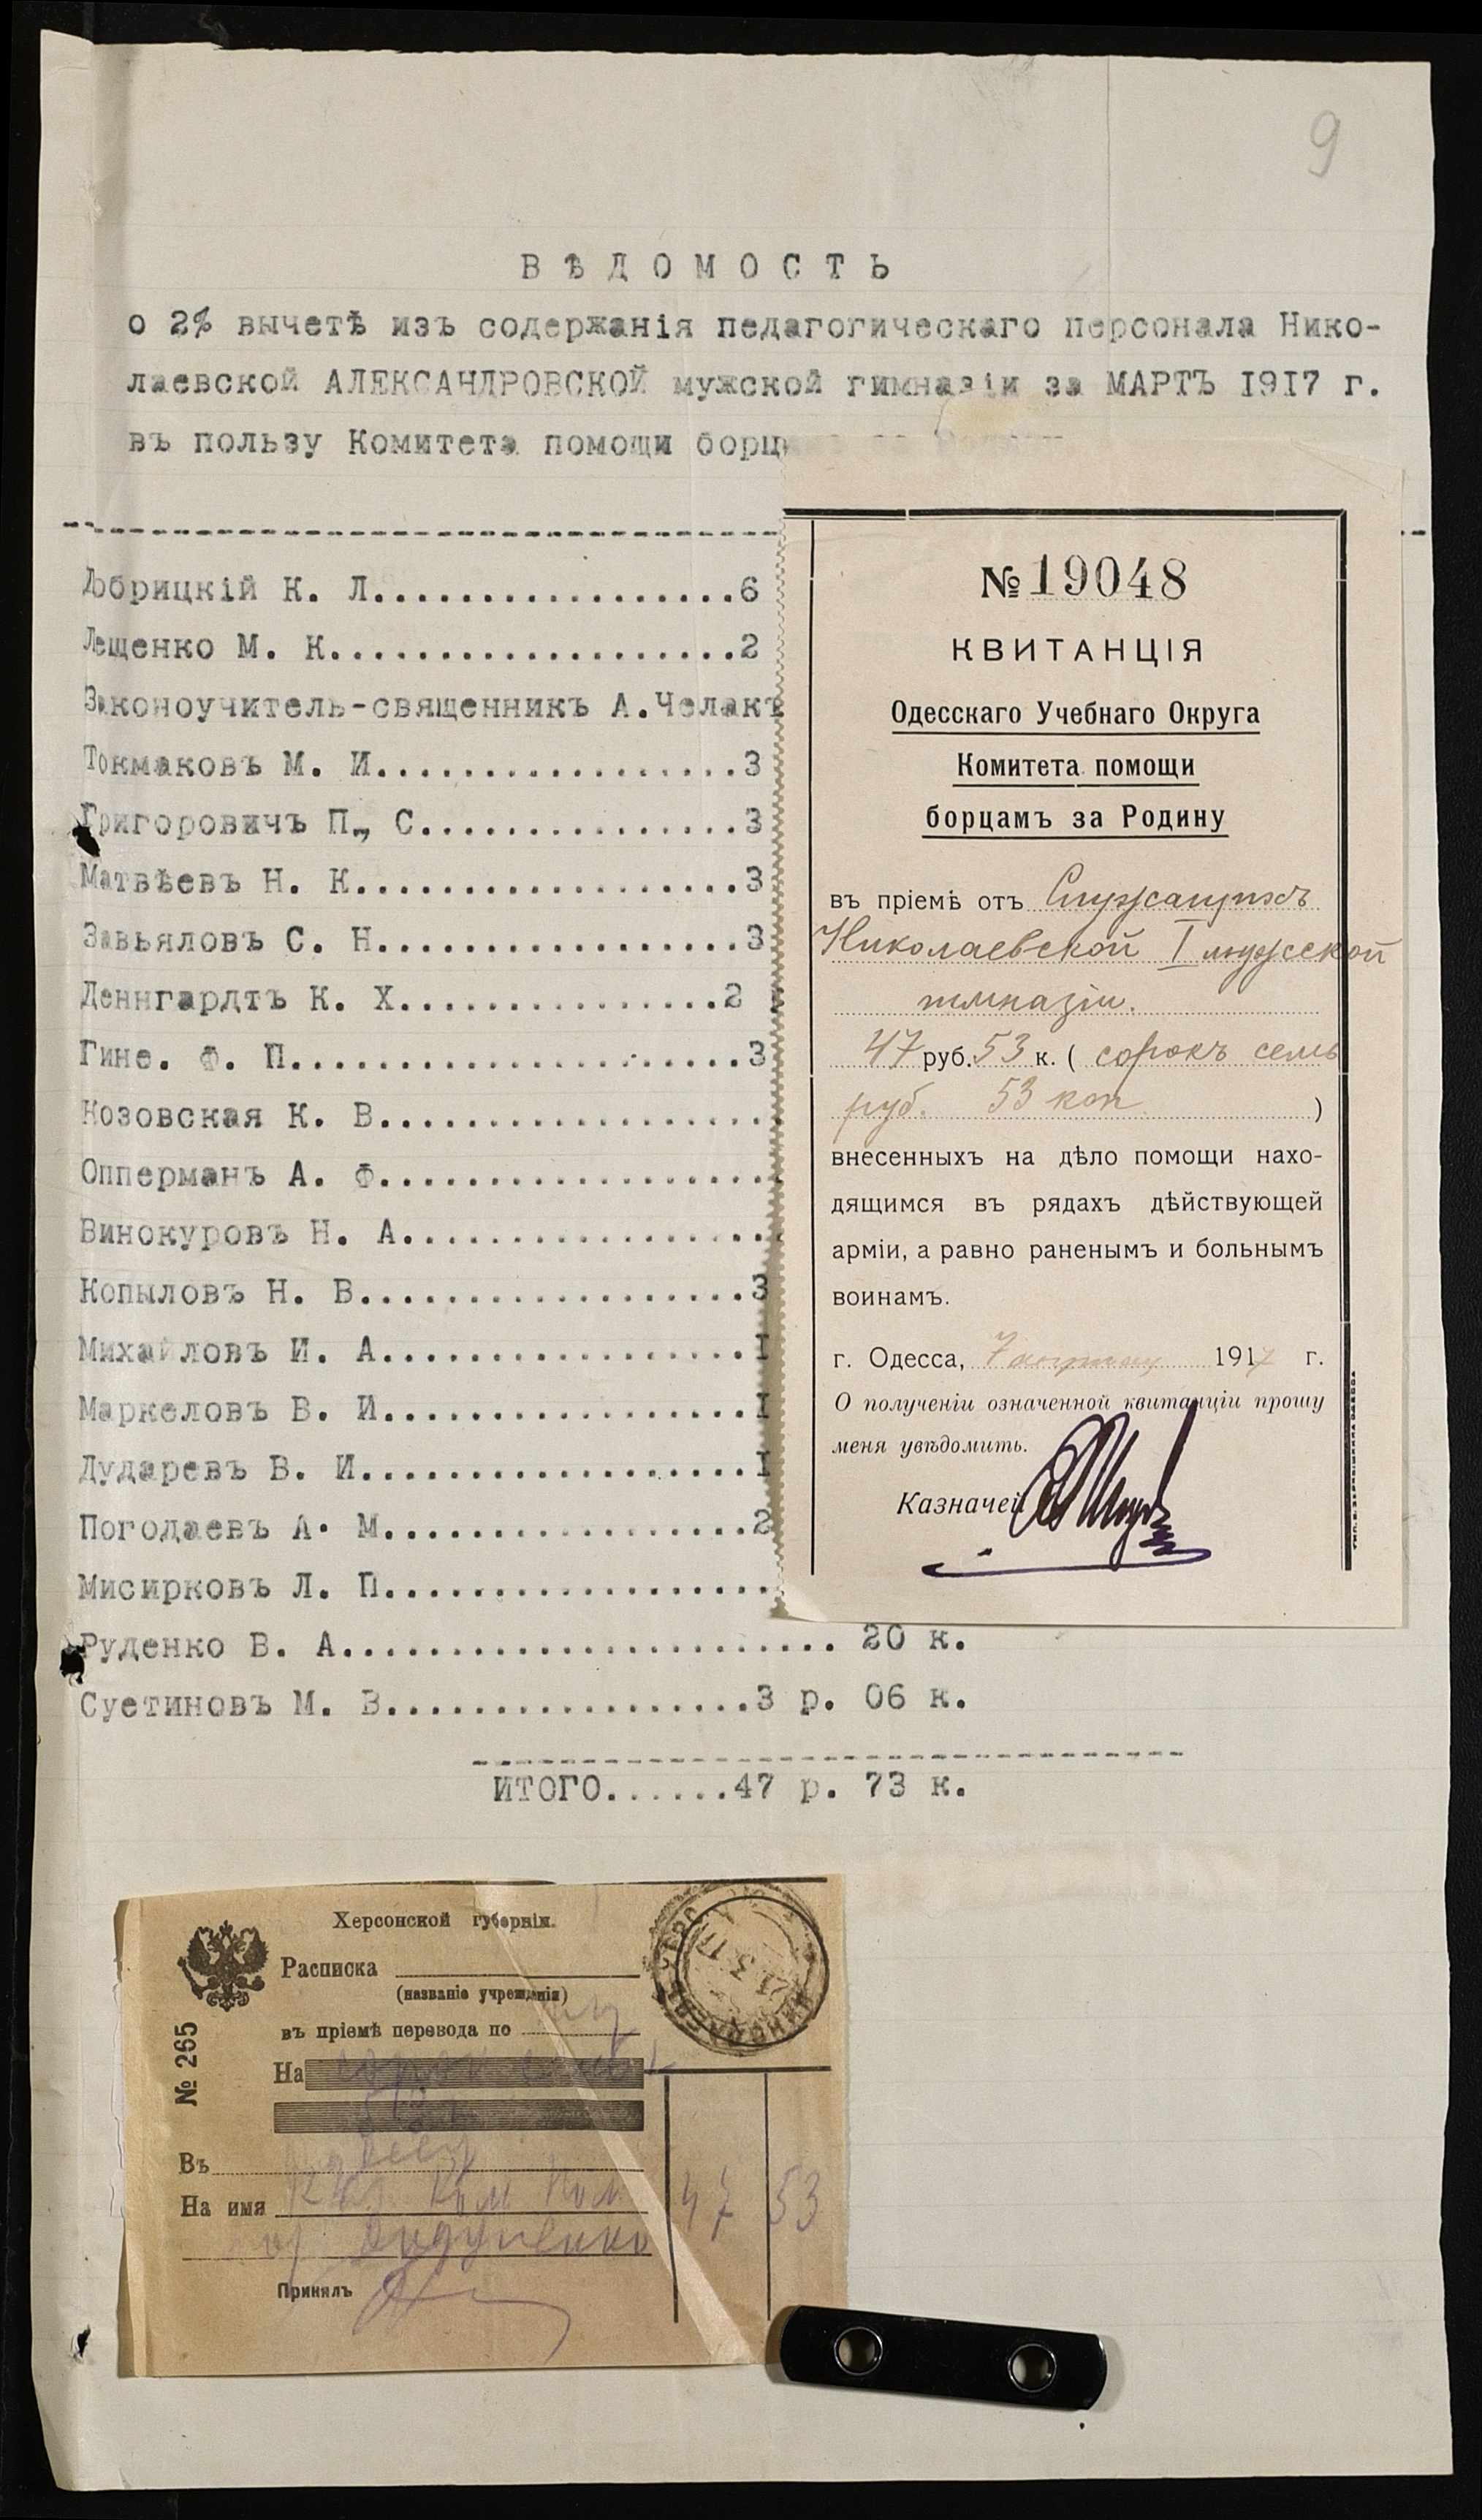 9
ВѢДОМОСТЬ
о 2% вычетѣ изъ содержанія педагогическаго персонала Нико-
лаевской АЛЕКСАНДРОВСКОЙ мужской гимназіи за МАРТЪ 1917 г.
въ пользу Комитета помощи борц
Добрицкій К. Л..................6
Лещенко М. К....................2
Законоучитель-священникъ А.Челак
Токмаковъ М. И..................3
Григоровичъ П., С................3
Матвѣевъ Н. К...................3
Завьяловъ С. Н..................3
Деннгардтъ К. Х................2
Гине. Ф. П......................3
Козовская К. В...................
Опперманъ А. Ф...................
Винокуровъ Н. А..................
Копыловъ Н. В...................3
Михайловъ И. А..................I
Маркеловъ В. И..................I
Дударевъ В. И...................I
Погодаевъ А. М..................2
Мисирковъ Л. П...................
Руденко В. А........................ 20 к.
Суетиновъ М. В..................3 р. 06 к.
ИТОГО......47 р. 73 к.
№ 19048
КВИТАНЦІЯ
Одесскаго Учебнаго Округа
Комитета помощи
борцамъ за Родину
въ пріемѣ отъ Служащихъ
Николаевской I мужской
гимназіи.
47 руб. 53 к. ( сорокъ семь
руб. 53 коп )
внесенныхъ на дѣло помощи нахо-
дящимся въ рядахъ дѣйствующей
арміи, а равно раненымъ и больнымъ
воинамъ.
г. Одесса, 7 1917 г.
О полученіи означенной квитанціи прошу
меня увѣдомить.
Казначей
Херсонской губерніи.
Расписка
(названіе учрежденія)
въ пріемѣ перевода по
№ 265
На сорок семь
53
Въ Одессу
На имя Ком Пом
47 53
Принялъ